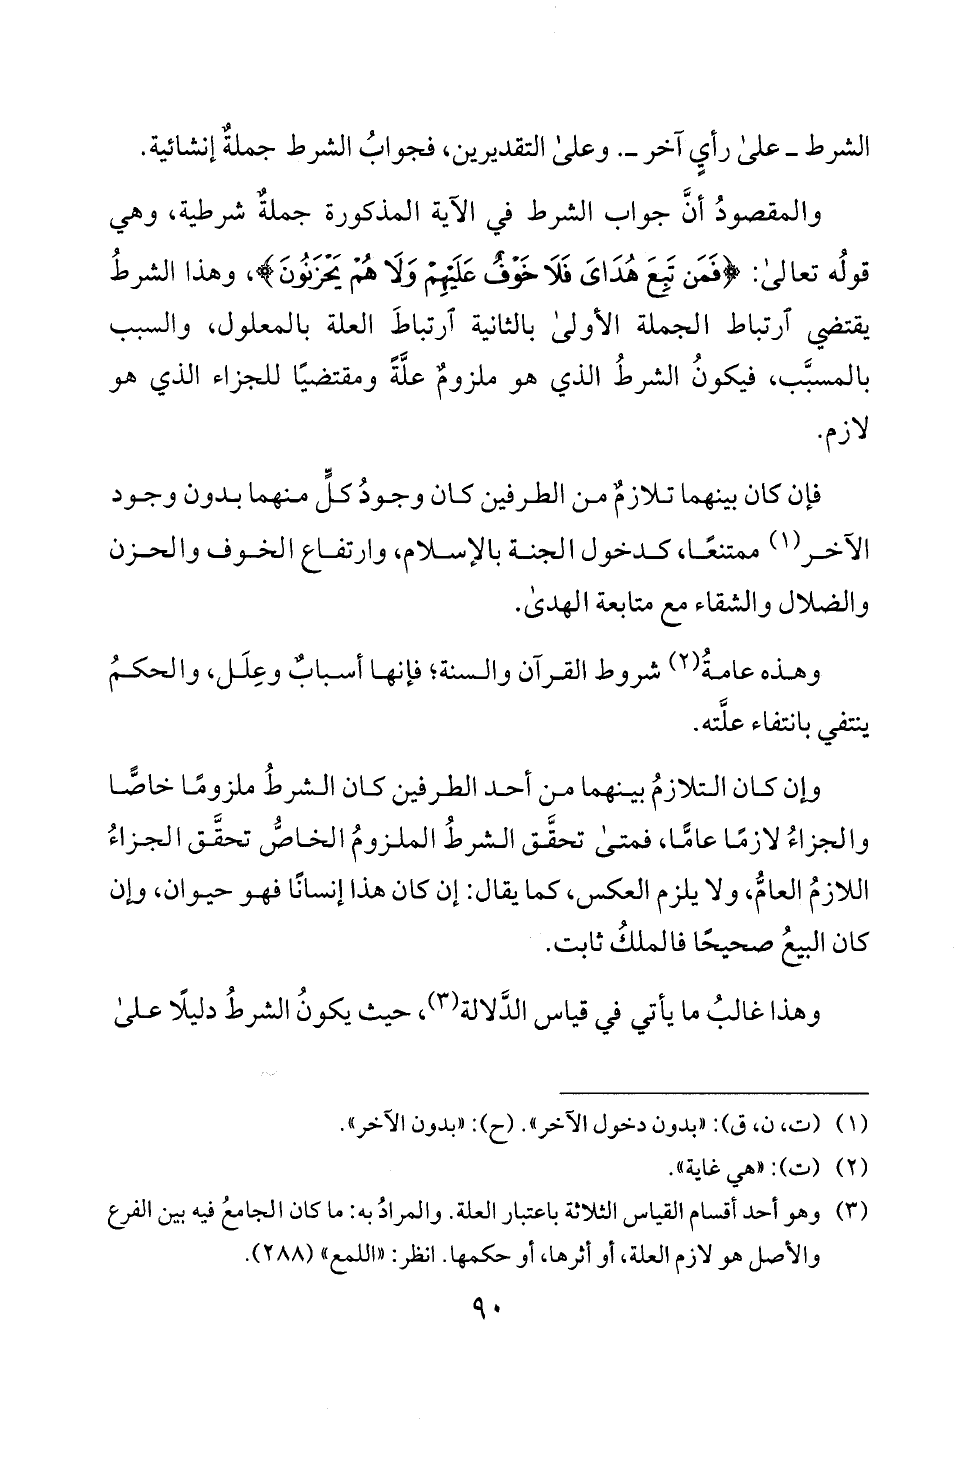 الشرط ـ علىٰ رأيٍ آخر ـ. وعلىٰ التقديرين، فجوابُ الشرط جملةٌ إنشائية.
والمقصودُ أنَّ جواب الشرط في الآية المذكورة جملةٌ شرطية، وهي
قولُه تعالىٰ: ﴿فَمَن تَبِعَ هُدَايَ فَلَا خَوْفٌ عَلَيْهِمْ وَلَا هُمْ يَحْزَنُونَ﴾، وهذا الشرطُ
يقتضي ٱرتباط الجملة الأولىٰ بالثانية ٱرتباطَ العلة بالمعلول، والسبب
بالمسبَّب، فيكونُ الشرطُ الذي هو ملزومٌ علَّةً ومقتضيًا للجزاء الذي هو
لازم.
فإن كان بينهما تلازمٌ من الطرفين كان وجودُ كلٍّ منهما بدون وجود
الآخر(١) ممتنعًا، كدخول الجنة بالإسلام، وارتفاع الخوف والحزن
والضلال والشقاء مع متابعة الهدىٰ.
وهذه عامةُ(٢) شروط القرآن والسنة؛ فإنها أسبابٌ وعِلَل، والحكمُ
ينتفي بانتفاء علَّته.
وإن كان التلازمُ بينهما من أحد الطرفين كان الشرطُ ملزومًا خاصًّا
والجزاءُ لازمًا عامًّا، فمتىٰ تحقَّق الشرطُ الملزومُ الخاصُّ تحقَّق الجزاءُ
اللازمُ العامُّ، ولا يلزم العكس، كما يقال: إن كان هذا إنسانًا فهو حيوان، وإن
كان البيعُ صحيحًا فالملكُ ثابت.
وهذا غالبُ ما يأتي في قياس الدَّلالة(٣)، حيث يكونُ الشرطُ دليلًا علىٰ
(١) (ت، ن، ق): «بدون دخول الآخر». (ح): «بدون الآخر».
(٢) (ت): «هي غاية».
(٣) وهو أحد أقسام القياس الثلاثة باعتبار العلة. والمرادُ به: ما كان الجامعُ فيه بين الفرع
والأصل هو لازم العلة، أو أثرها، أو حكمها. انظر: «اللمع» (٢٨٨).
٩٠